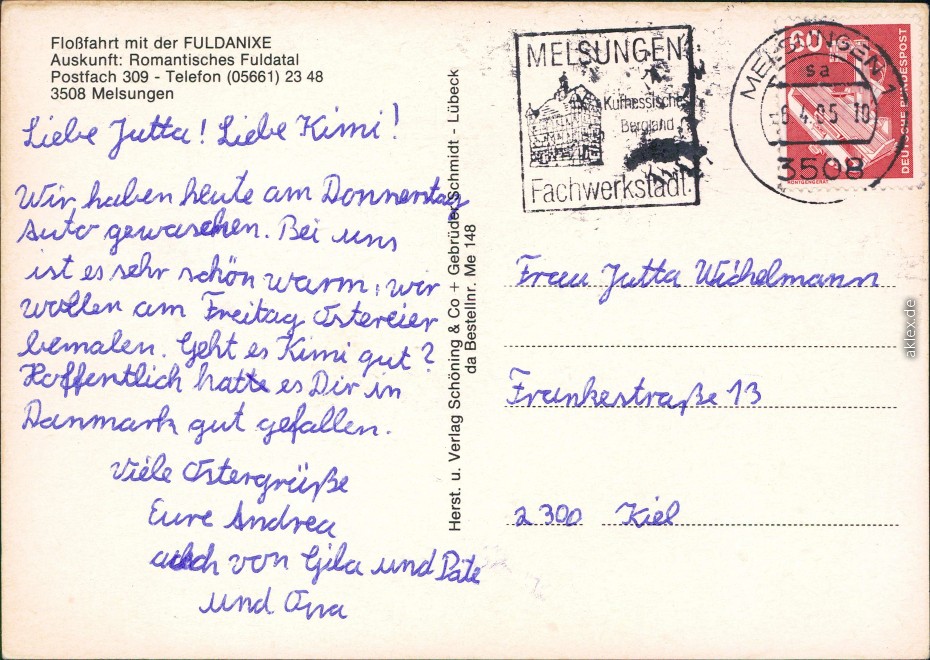 Floßfahrt mit der FULDANIXE
Auskunft: Romantisches Fuldatal
Postfach 309 - Telefon (05661) 23 48
3508 Melsungen
Liebe Jutta! Liebe Kimi!
Wir haben heute am Donnerstag
Auto gewaschen. Bei uns
ist es sehr schön warm, wir
wollen am Freitag Ostereier
bemalen. Geht es Kimi gut?
Hoffentlich hatte es Dir in
Danmark gut gefallen.
Viele Ostergrüße
Eure Andrea
auch von Gila und Päte
und Opa
Herst. u. Verlag Schöning & Co + Gebrüder Schmidt - Lübeck
da Bestellnr. Me 148
MELSUNGEN
Kurhessisches
Bergland
Fachwerkstadt
MELSUNGEN 1
sa
-6.4.85 10
3508
60
DEUTSCHE BUNDESPOST
RÖNTGENGERÄT
Frau Jutta Wichelmann
Frankestraße 13
2300 Kiel
aklex.de